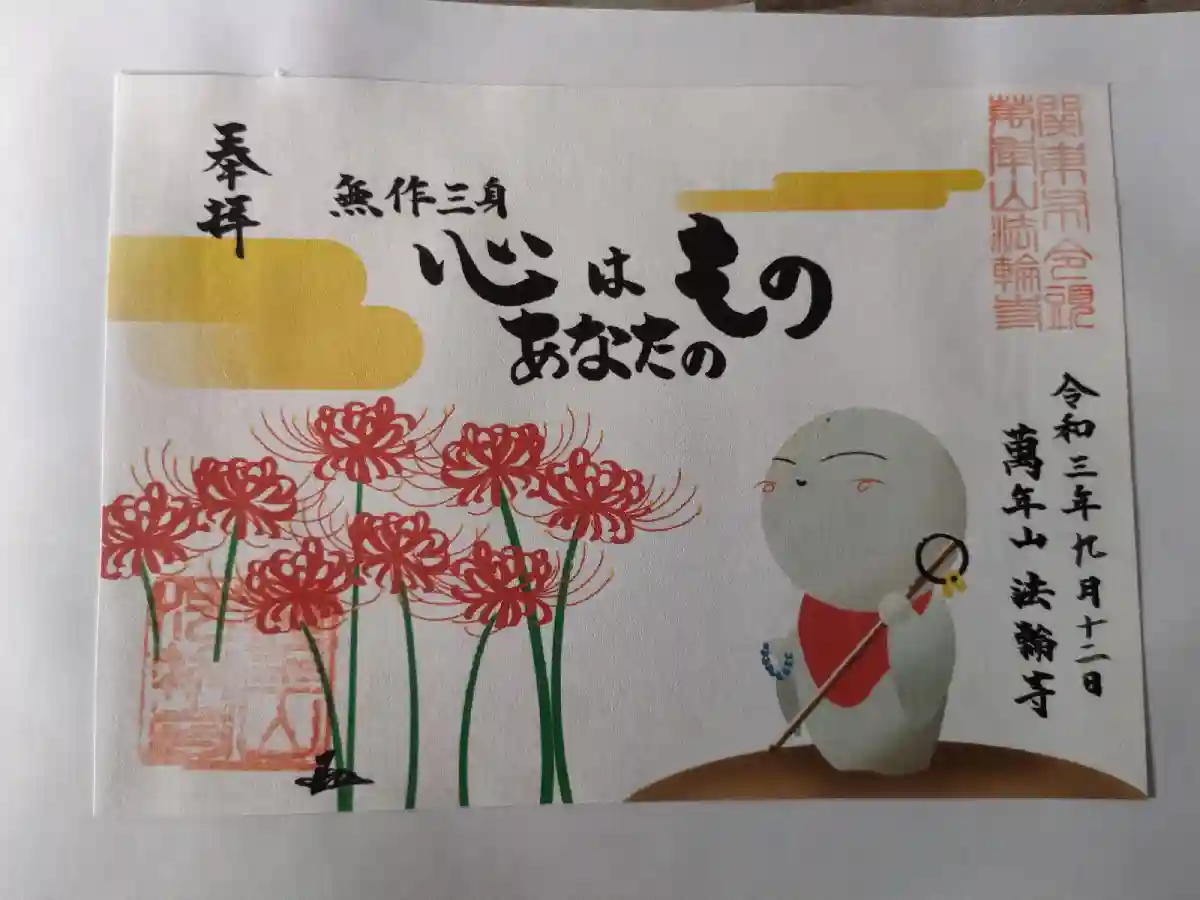 奉拝
無作三身
心は もの
あなたの
関東布令頭
萬年山法輪寺
令和三年九月十二日
萬年山 法輪寺